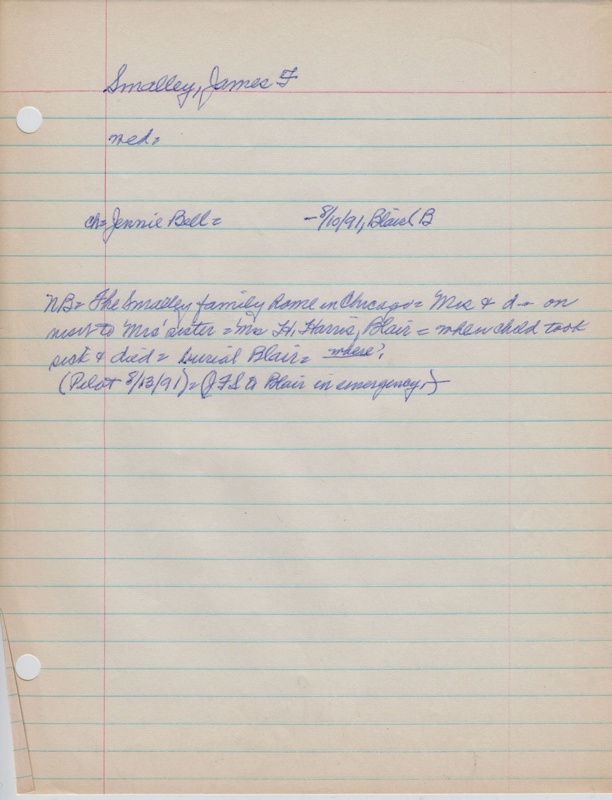 Smalley, James F
med=
ch= Jennie Bell = - 8/10/91, Blair B
NB= The Smalley family home in Chicago = Mrs & d - on
visit to Mrs' sister = Mrs H. Harris, Blair = when child took
sick & died = burial Blair = where?
(Pilot 8/13/91) = (JFS to Blair in emergency.)